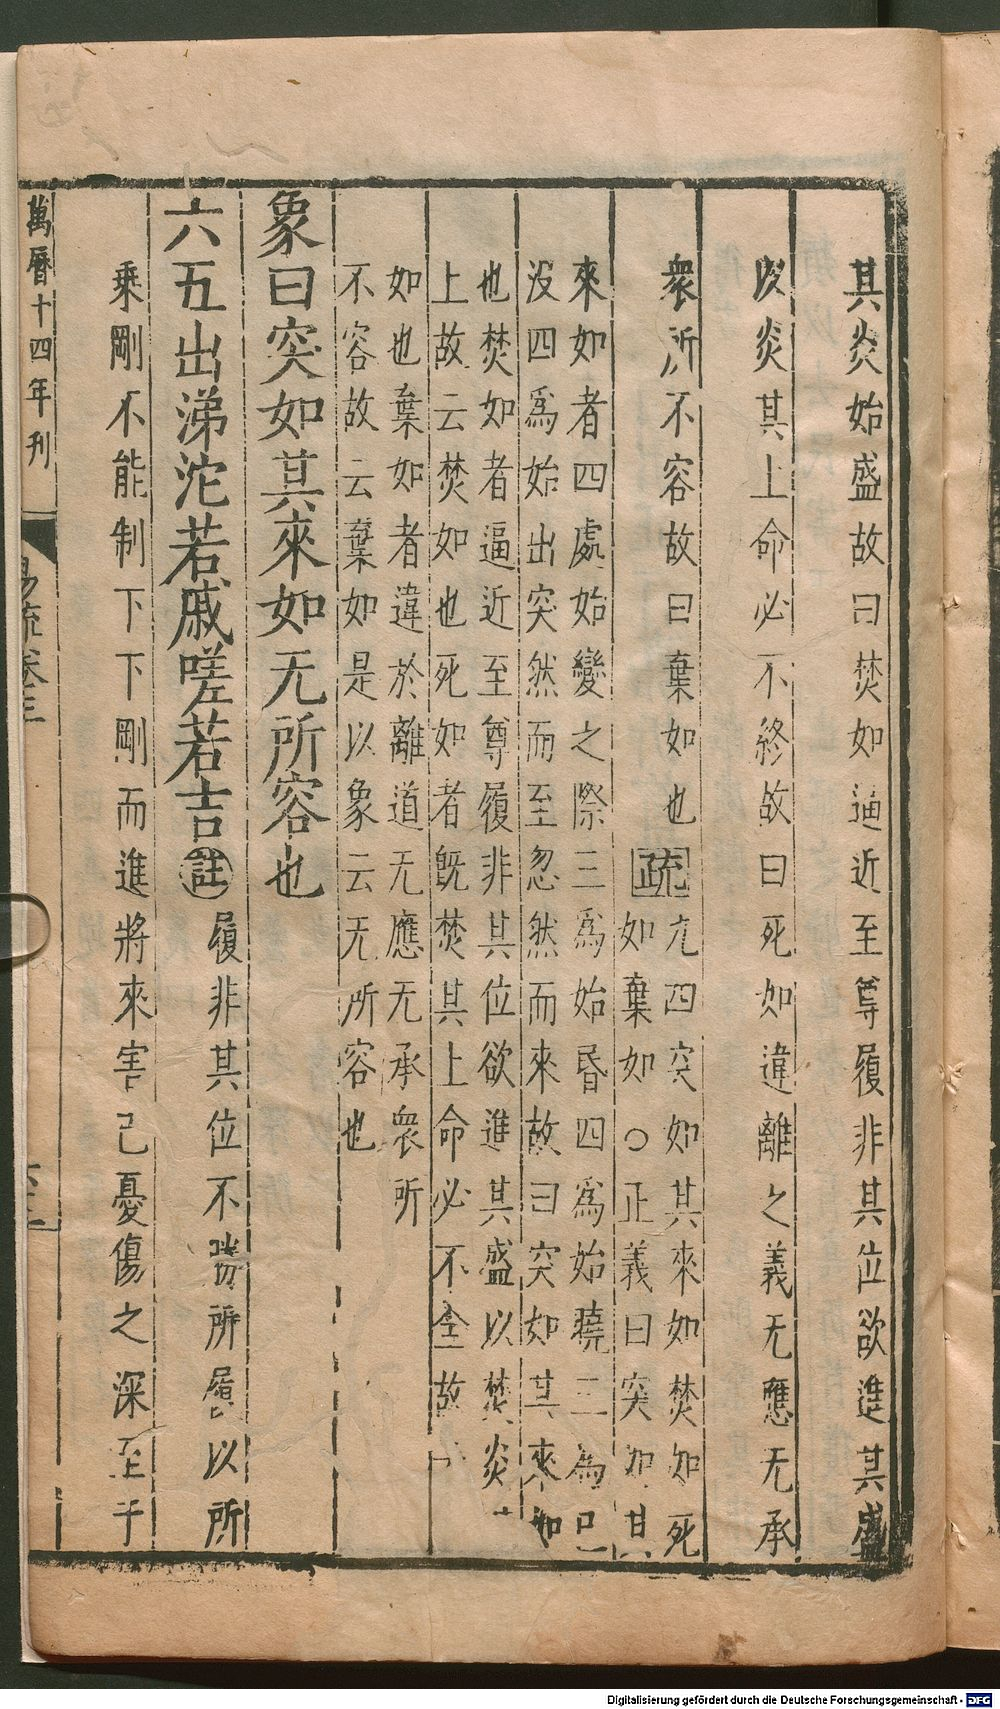 其炎始盛故曰焚如逼近至尊履非其位欲進其盛
以炎其上命必不終故曰死如違離之義无應无承
衆所不容故曰棄如也疏九四突如其來如焚如死
如棄如○正義曰突如其
來如者四處始變之際三爲始昏四爲始曉三爲已
没四爲始出突然而至忽然而來故曰突如其來如
也焚如者逼近至尊履非其位欲進其盛以焚炎
上故云焚如也死如者旣焚其上命必不全故
如也棄如者違於離道无應无承衆所
不容故云棄如是以象云无所容也
象曰突如其來如无所容也
六五出涕沱若戚嗟若吉註履非其位不勝所履以所
乘剛不能制下下剛而進將來害己憂傷之深至于
萬曆十四年刊
易疏卷三